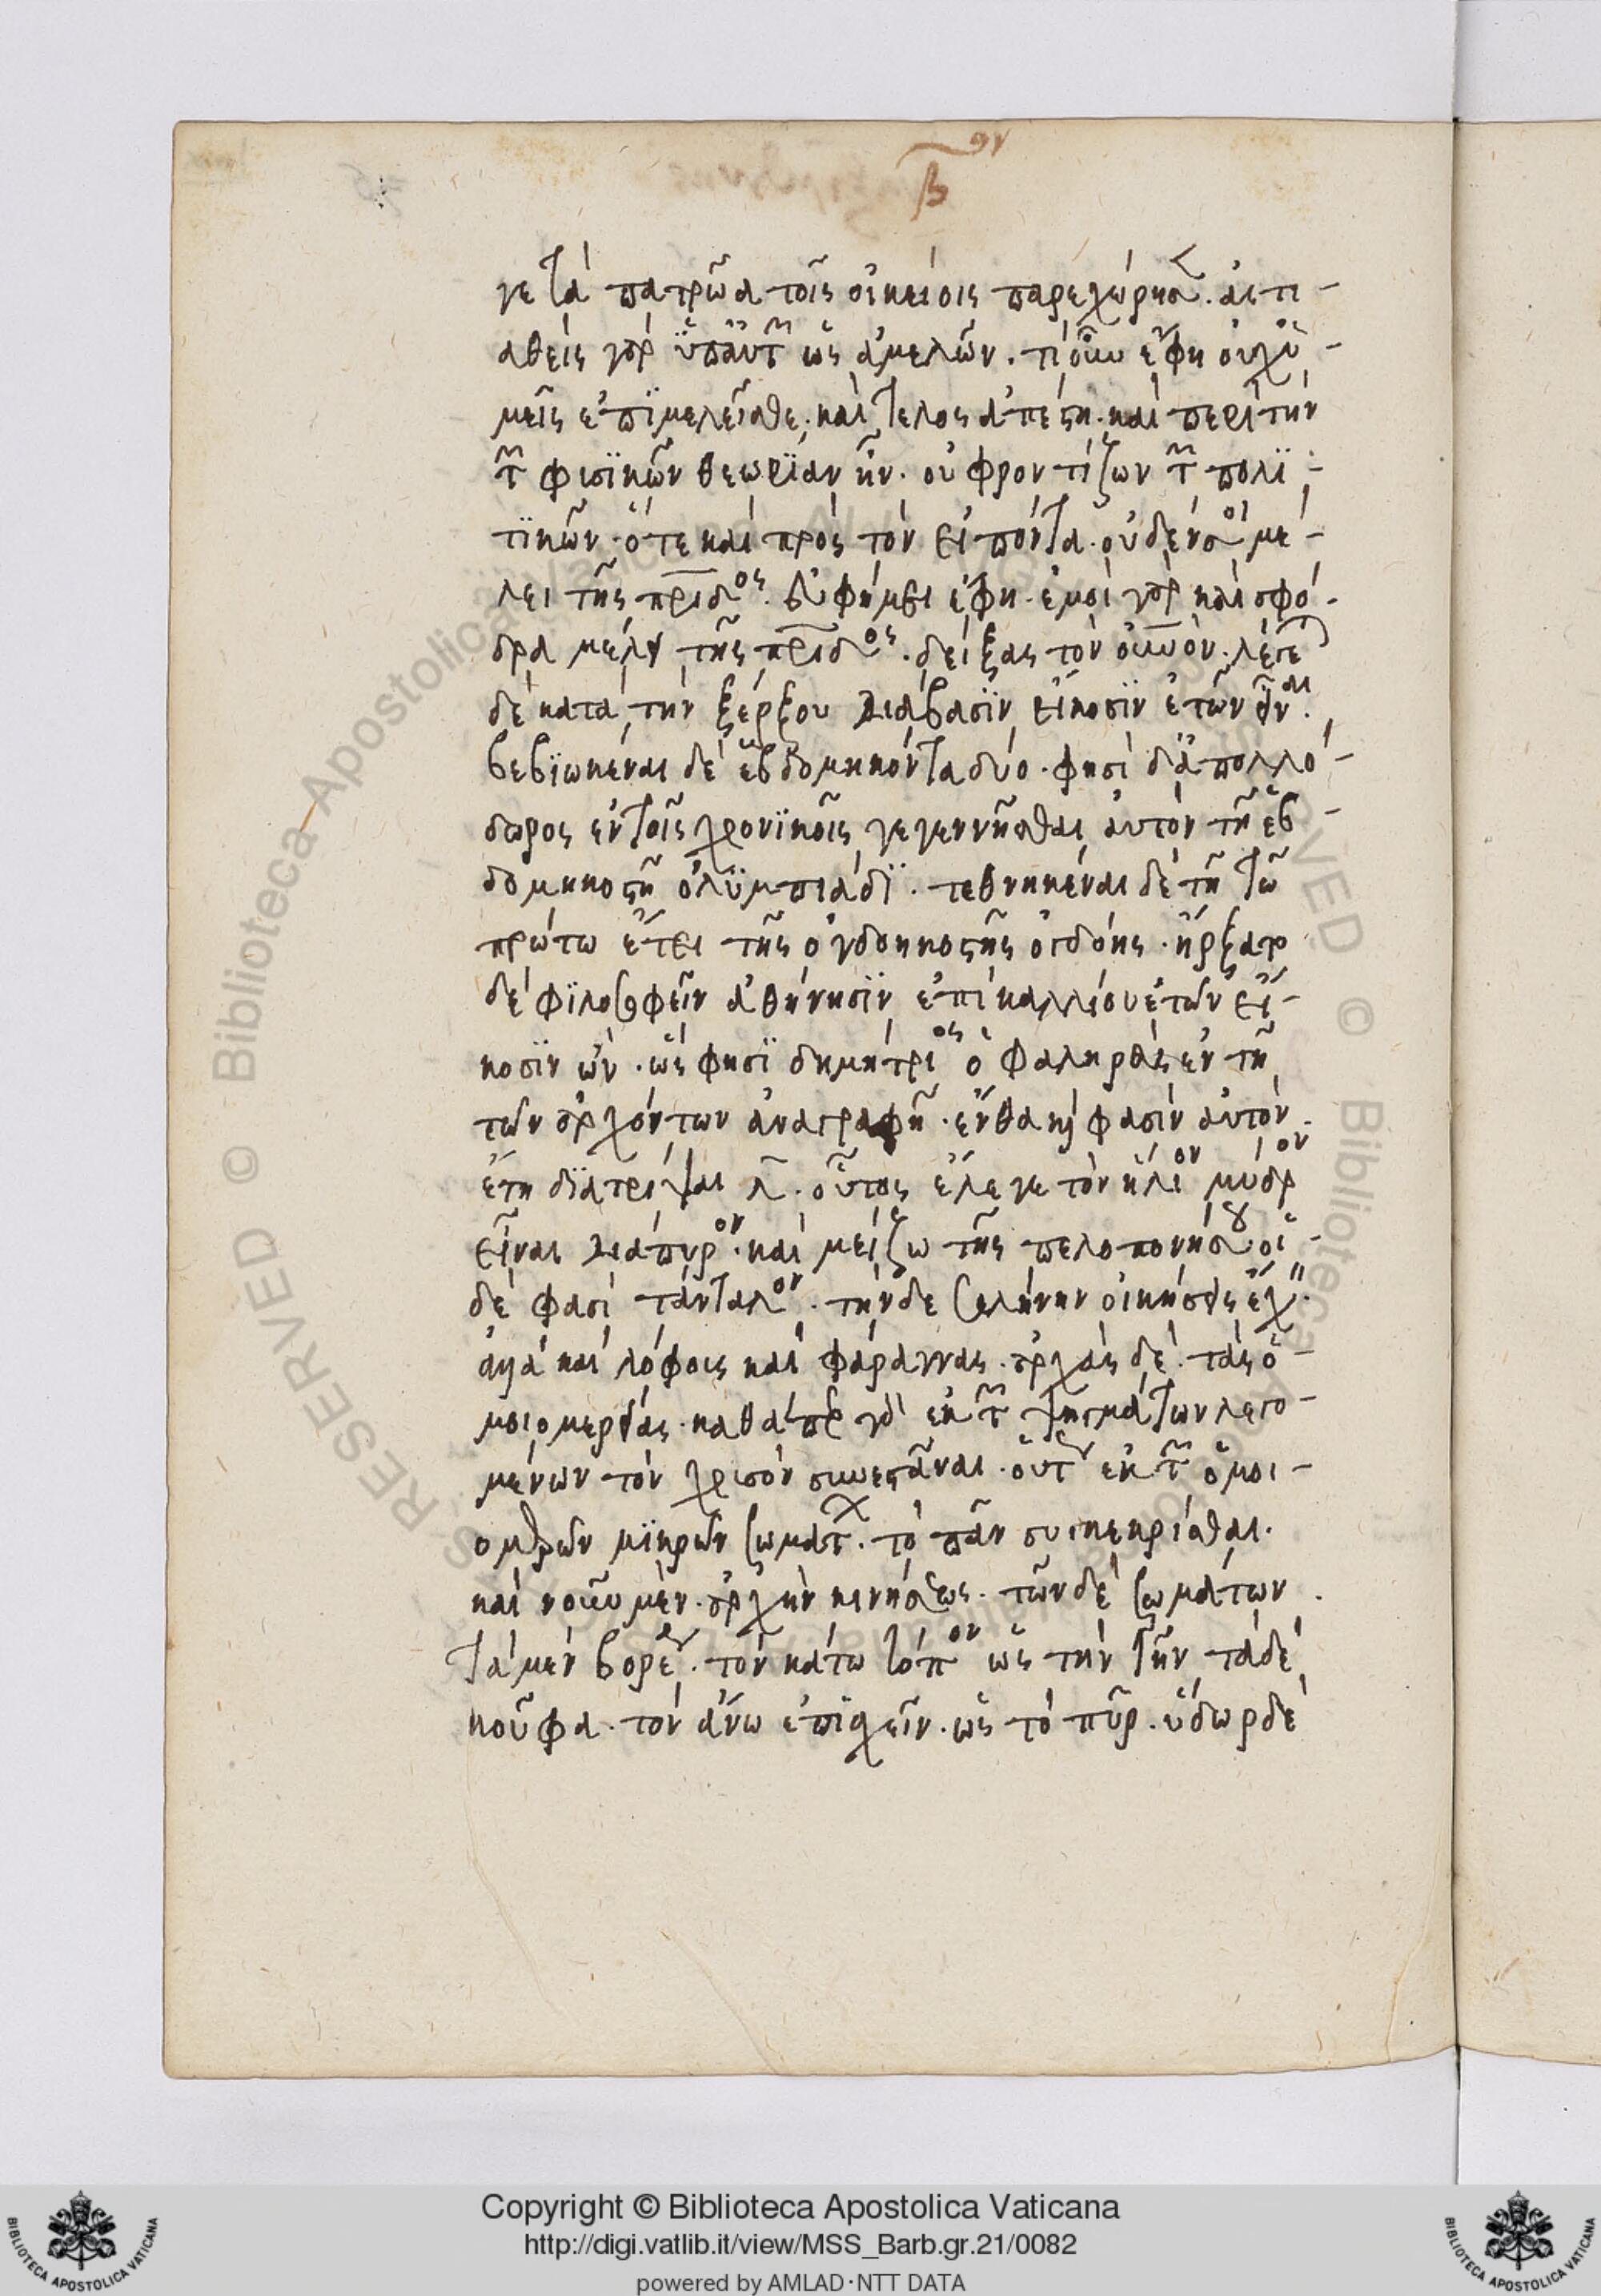 βον
γε τὰ πατρῶα τοῖς οἰκείοις παρεχώρησεν. αἰτι-
αθεὶς γὰρ ὑπ' αὐτῶν ὡς ἀμελῶν. τί οὖν ἔφη οὐχ ὑ-
μεῖς ἐπϊμελεῖσθε. καὶ τέλος ἀπέστη. καὶ περὶ τὴν
τῶν φυσϊκῶν θεωρΐαν ἦν. οὐ φροντίζων τῶν πολϊ-
τϊκῶν. ὅτε καὶ πρὸς τὸν εἰπόντα. οὐδέν σοι μέ-
λει τῆς πρίδος. εὐφήμει ἔφη. ἐμοὶ γὰρ καὶ σφό-
δρα μέλει τῆς πρίδος. δείξας τὸν οὐνὸν. λέγεται
δὲ κατὰ τὴν ξέρξου διάβασϊν εἴκοσϊν ἐτῶν εἶναι.
βεβϊωκέναι δὲ ἑβδομηκόντα δύο. φησὶ δ' ἀπολλό-
δωρος ἐν τοῖς χρονϊκοῖς γεγεννῆσθαι αὐτὸν τῆ ἑβ-
δομηκοστῆ ὀλϋμπιάδϊ. τεθνηκέναι δὲ τῆ τῶ
πρώτω ἔτει τῆς ὀγδοηκοστῆς ὀγδόης. ἤρξατο
δὲ φϊλοσοφεῖν ἀθήνησϊν ἐπὶ καλλίου ἐτῶν εἴ-
κοσϊν ὤν. ὥς φησϊ δημήτριος ὁ φαληρεὺς ἐν τῆ
τῶν ἀρχόντων ἀναγραφῆ. ἔνθα καί φασϊν αὐτὸν
ἔτη δϊατρίψαι λ. οὗτος ἔλεγε τὸν ἥλιον μύδρον
εἶναι διάπυρον. καὶ μείζω τῆς πελοπονήσου οἱ
δέ φασϊ τάνταλον. τὴν δὲ σελήνην οἰκήσεις ἔχειν.
ἀλλὰ καὶ λόφους καὶ φάραγγας. ἀρχὰς δὲ. τὰς ὁ-
μοιομερείας. καθάπερ γὰρ ἐκ τῶν ψηγμάτων λεγο-
μένων τὸν χρυσὸν συνεστᾶναι. οὕτως ἐκ τῶν ὁμοι-
ομερῶν μϊκρῶν σωμάτων. τὸ πᾶν συγκεκρίσθαι.
καὶ νοῦν μὲν. ἀρχὴν κινήσεως. τῶν δὲ σωμάτων
τὰ μὲν βαρέα. τὸν κάτω τόπον ὡς τὴν γῆν τὰ δὲ
κοῦφα. τὸν ἄνω ἐπϊσχεῖν. ὡς τὸ πῦρ. ὕδωρ δὲ
© Biblioteca Apostolica Vaticana
Copyright © Biblioteca Apostolica Vaticana
http://digi.vatlib.it/view/MSS_Barb.gr.21/0082
powered by AMLAD·NTT DATA
BIBLIOTECA APOSTOLICA VATICANA
BIBLIOTECA APOSTOLICA VATICANA